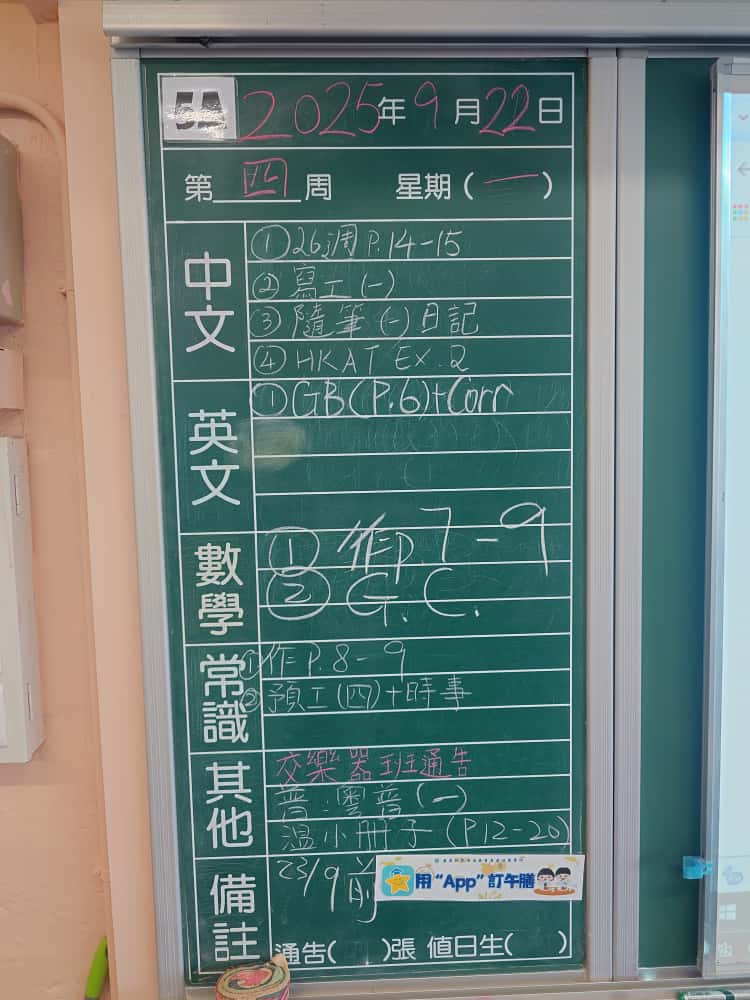 5A 2025年9月22日
第四周 星期(一)
中文
①26週 P.14-15
②寫工(一)
③隨筆(一)日記
④HKAT EX.2
英文
①GB(P.6)+Corr
數學
①作P.7-9
②G.C.
常識
①作P.8-9
②預工(四)+時事
其他
交樂器班通告
普:粵普(一)
溫小冊子(P.12-20)
備註
23/9前
用“App”訂午膳
通告( )張 值日生( )